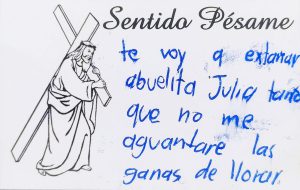 Sentido Pésame
te voy a extañar
abuelita Julia tanto
que no me
aguantare las
ganas de llorar.